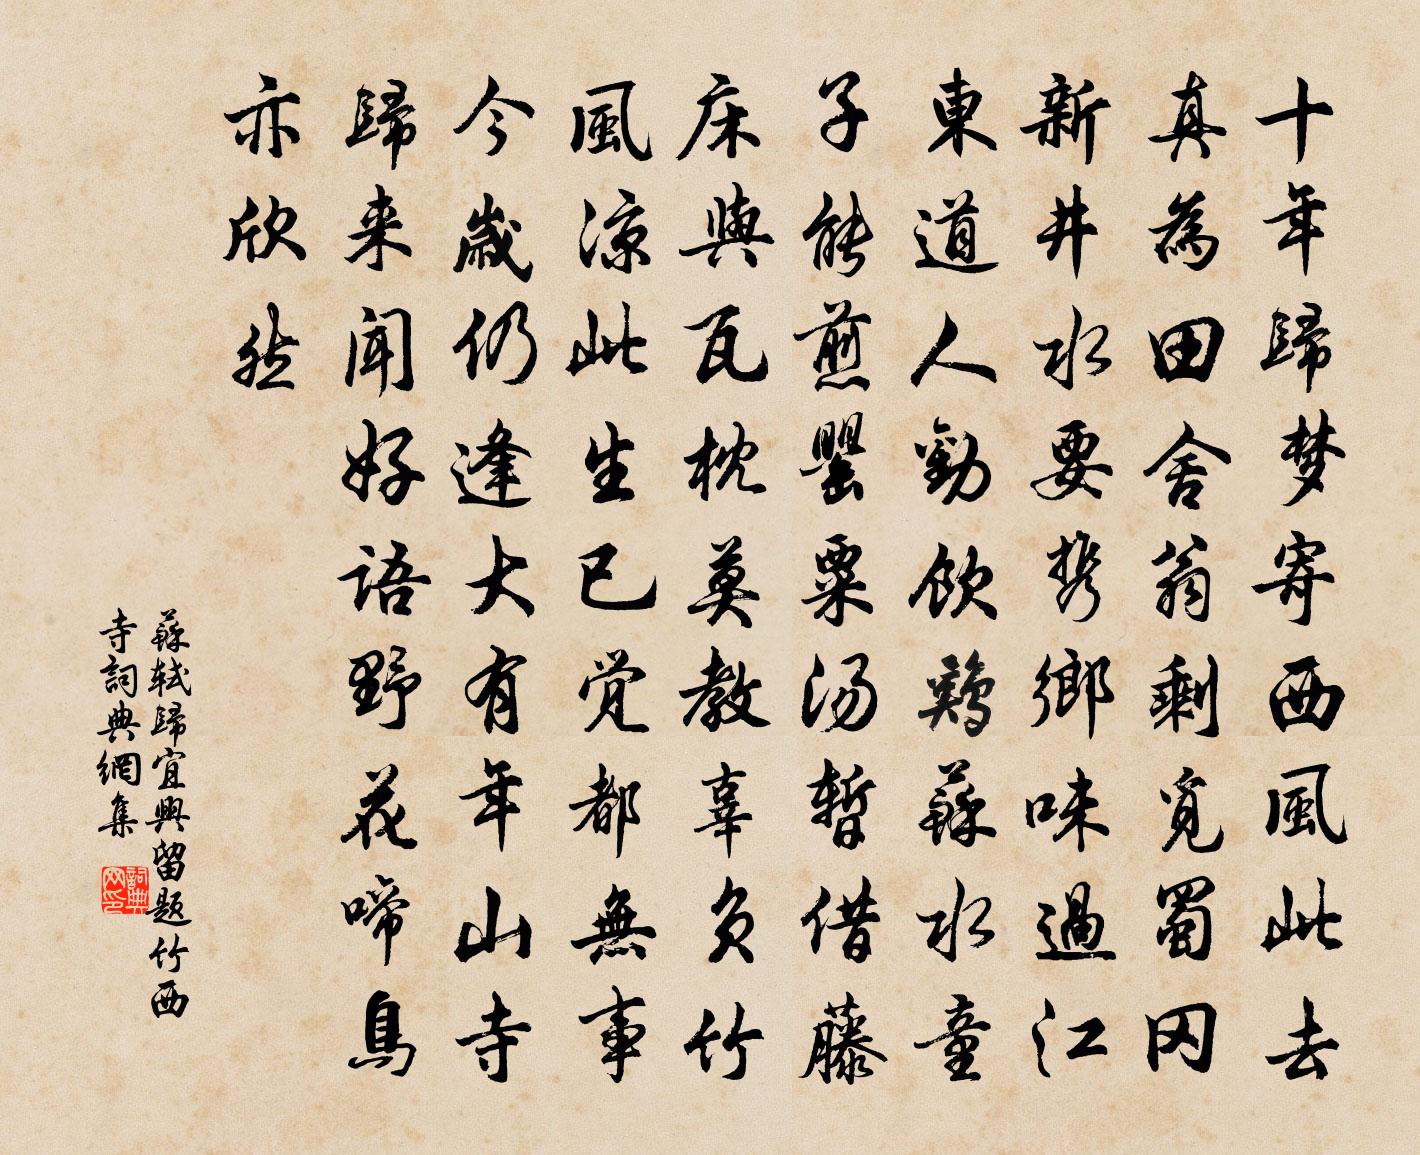 十年歸梦寄西風此去
真為田舍翁剩覓蜀冈
新井水要携鄉味過江
東道人勸飲鷄蘇水童
子能煎罌粟汤暫借藤
床與瓦枕莫教辜负竹
風涼此生已觉都無事
今歲仍逢大有年山寺
歸来聞好語野花啼鳥
亦欣然
蘇軾歸宜興留题竹西
寺詞典網集
詞典
网印